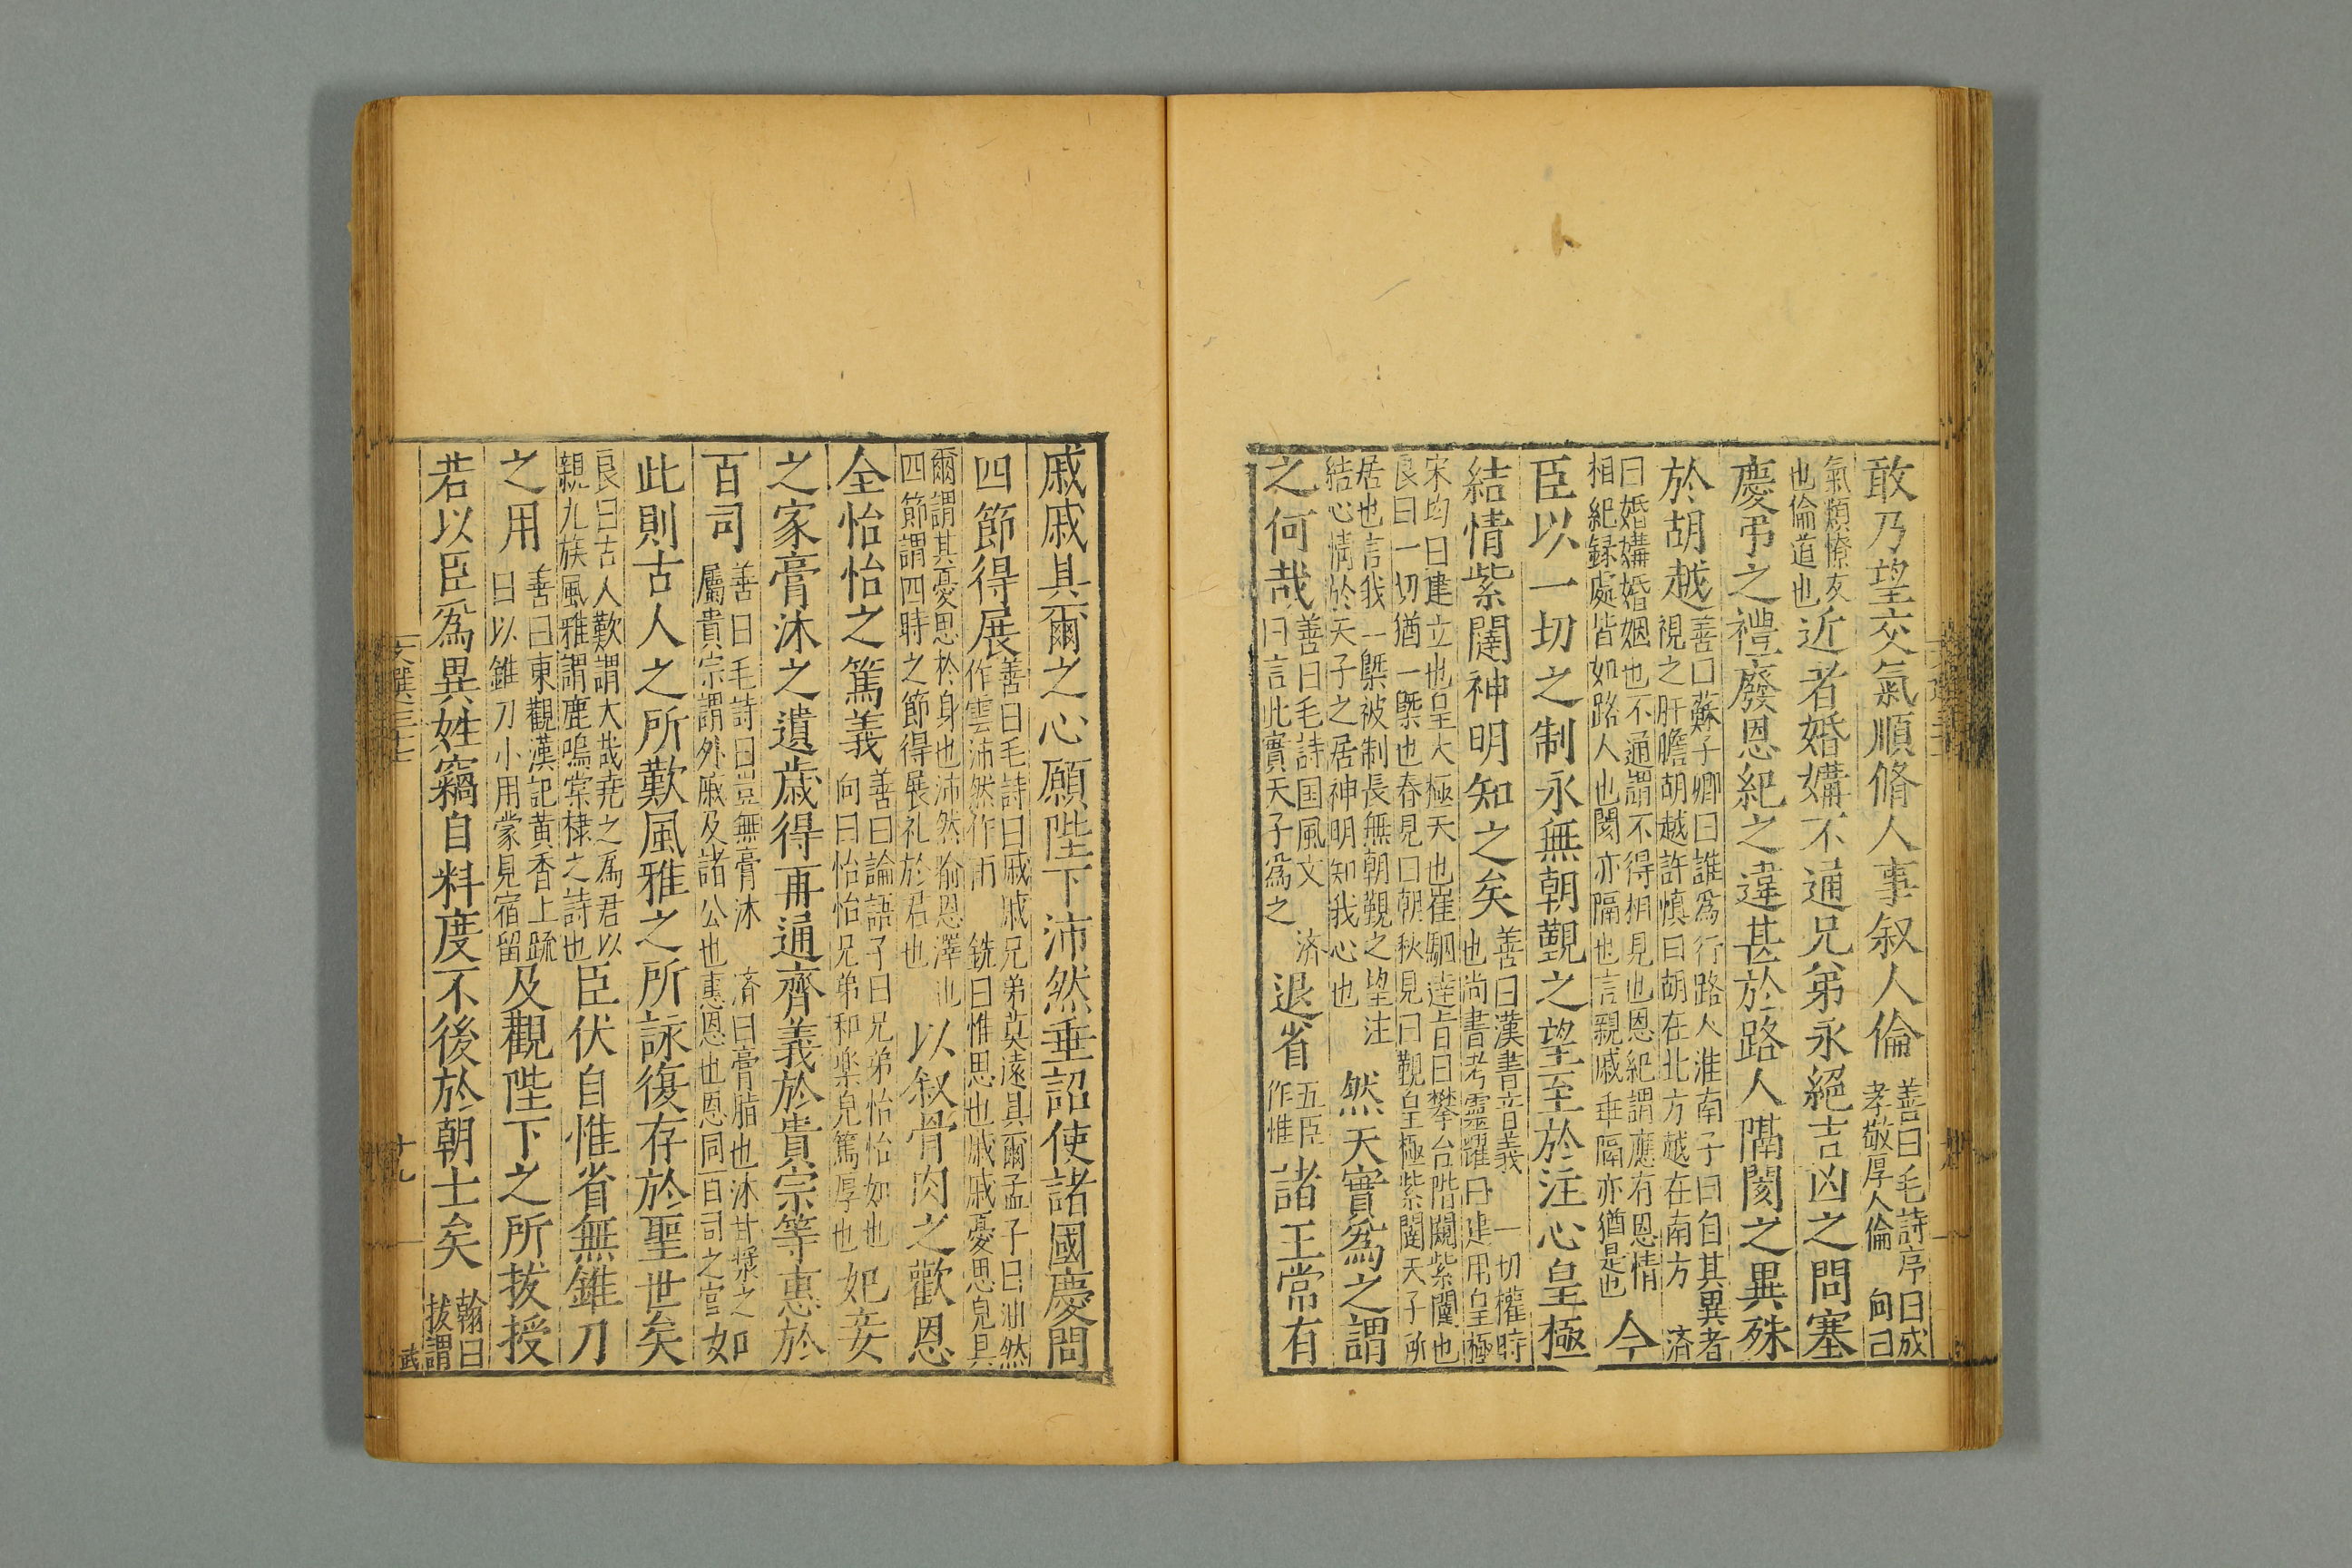 敢乃望交氣順脩人事叙人倫善曰毛詩序曰成孝敬厚人倫 向曰
氣類憭友也倫道也近者婚媾不通兄弟永絕吉凶之問塞
慶弔之禮廢恩紀之違甚於路人隔閡之異殊
於胡越善曰蘇子卿曰誰爲行路人淮南子曰自其異者視之肝膽胡越許慎曰胡在北方越在南方 済
曰婚媾婚姻也不通謂不得相見也恩紀謂應有恩情相紀録處皆如路人也閡亦隔也言親戚乖隔亦猶是也今
臣以一切之制永無朝覲之望至於注心皇極
結情紫闥神明知之矣善曰漢書音義 一切權時也尚書考靈耀曰建用皇極
宋均曰建立也皇大極天也崔駰達旨曰攀台階闚紫闥也良曰一切猶一槩也春見曰朝秋見曰覲皇極紫闥天子所
居也言我一槩被制長無朝覲之望注結心情於天子之居神明知我心也然天實爲之謂
之何哉善曰毛詩国風文 済曰言此實天子爲之退省五臣作惟諸王常有
戚戚具爾之心願陛下沛然垂詔使諸國慶問
四節得展善曰毛詩曰戚戚兄弟莫遠具爾孟子曰油然作雲沛然作雨 銑曰惟思也戚戚憂思皃具
爾謂其憂思於身也沛然喻恩澤也四節謂四時之節得展礼於君也以叙骨肉之歡恩
全怡怡之篤義善曰論語子曰兄弟怡怡如也向曰怡怡兄弟和楽皃篤厚也妃妾
之家膏沐之遺歳得再通齊義於貴宗等惠於
百司善曰毛詩曰豈無膏沐 済曰膏脂也沐甘漿之屬貴宗謂外戚及諸公也惠恩也恩同百司之官如
此則古人之所歎風雅之所詠復存於聖世矣
良曰古人歎謂大哉堯之爲君以親九族風雅謂鹿鳴棠棣之詩也臣伏自惟省無錐刀
之用善曰東觀漢記黄香上疏曰以錐刀小用蒙見宿留及觀陛下之所拔授
若以臣爲異姓竊自料度不後於朝士矣翰曰拔謂
文選三十七
十九
武